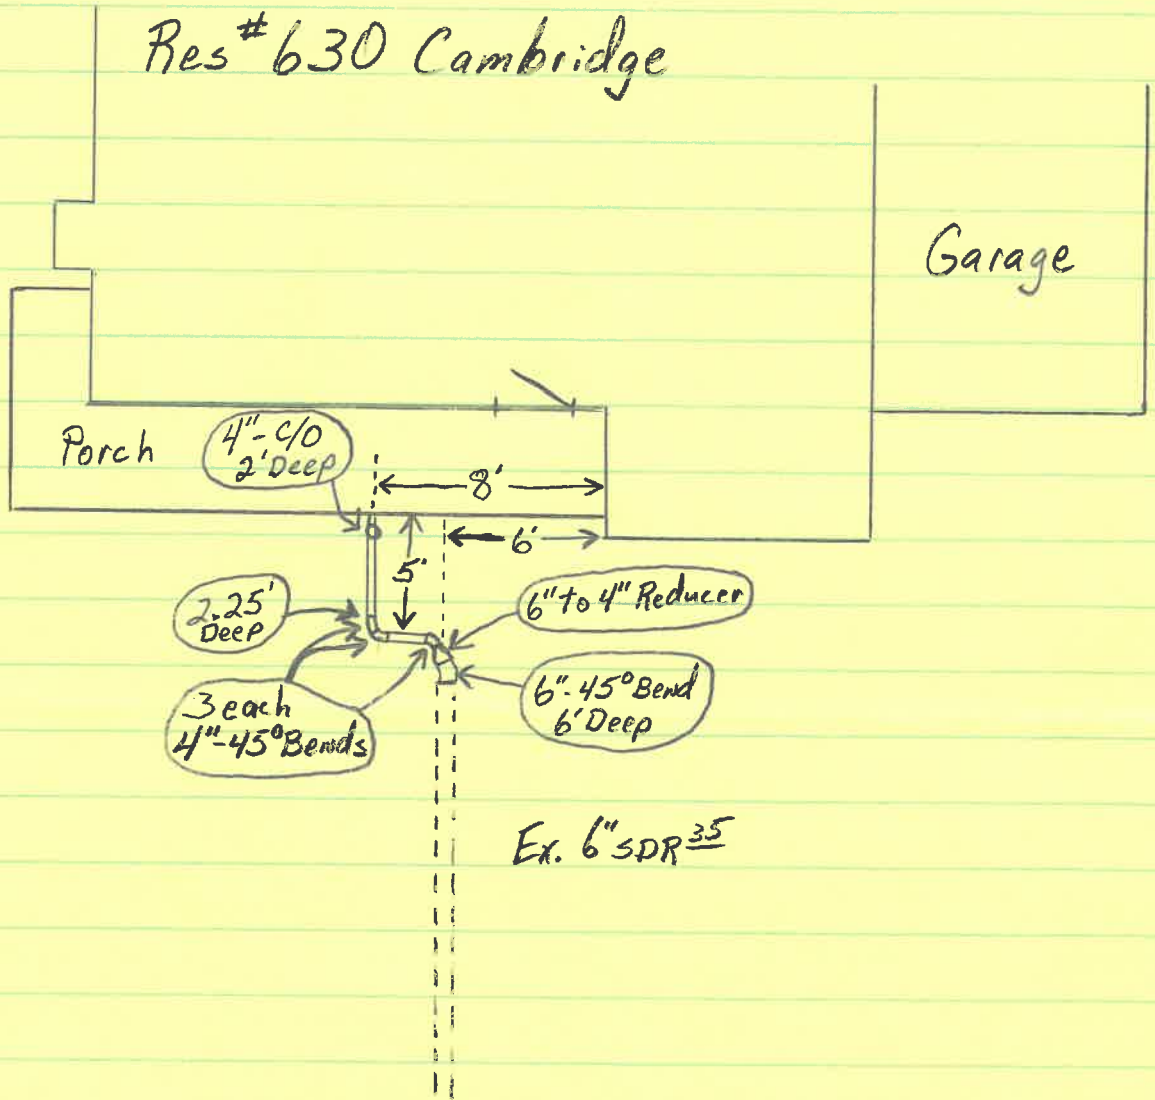 Res # 630 Cambridge
Garage
Porch
4"-C/O
2' Deep
8'
6'
5'
2.25'
Deep
6" to 4" Reducer
3 each
4"-45° Bends
6"-45° Bend
6' Deep
Ex. 6" SDR 35